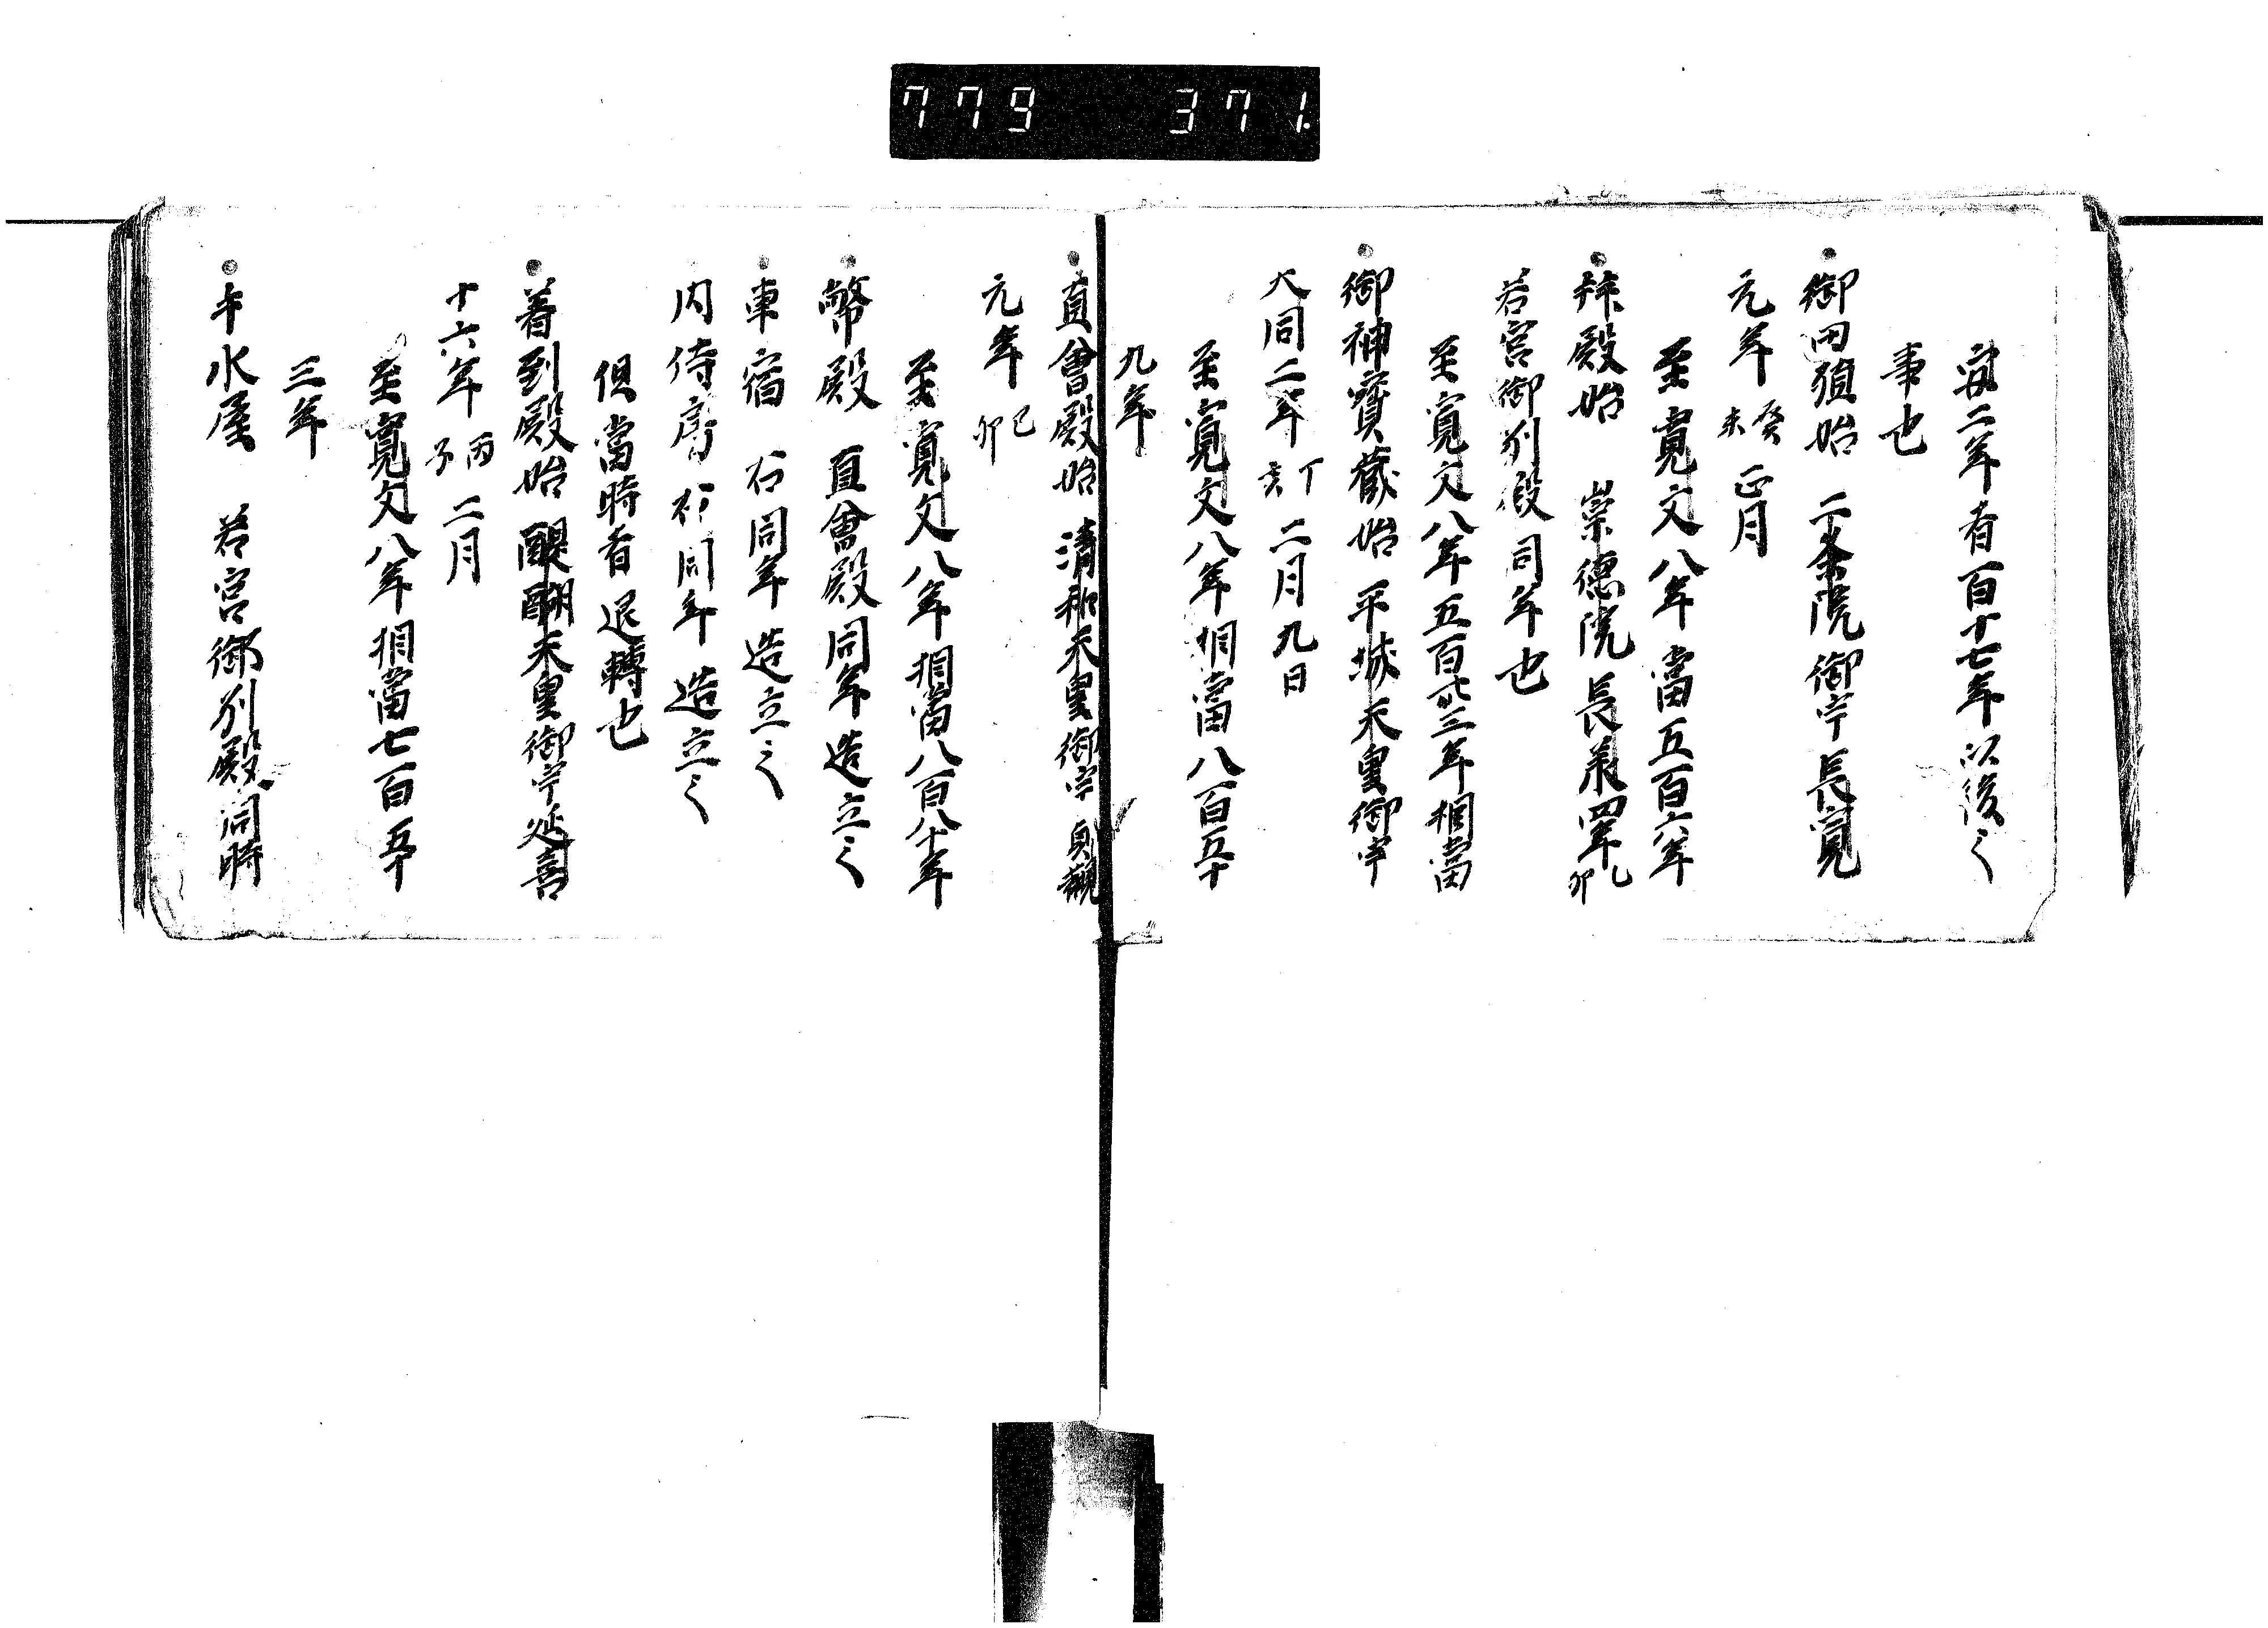 779 371
安二年者百十七年以後之
事也
御田殖始 二条院御宇長寛
元年癸未正月
至寛文八年當五百六年
拜殿始 崇徳院長義四年乙卯
若宮御別殿同年也
至寛文八年五百卅三年相當
御神寶蔵始 平城天皇御宇
大同二年丁亥二月九日
至寛文八年相當八百五十
九年
直會殿始 清和天皇御宇貞観
元年己卯
至寛文八年相當八百八十年
幣殿 直會殿同年造立之
車宿 右同年造立之
内侍房 右同年造立之
但當時者退轉也
着到殿始 醍醐天皇御宇延喜
十六年丙子二月
至寛文八年相當七百五十
三年
水屋 若宮御別殿同時